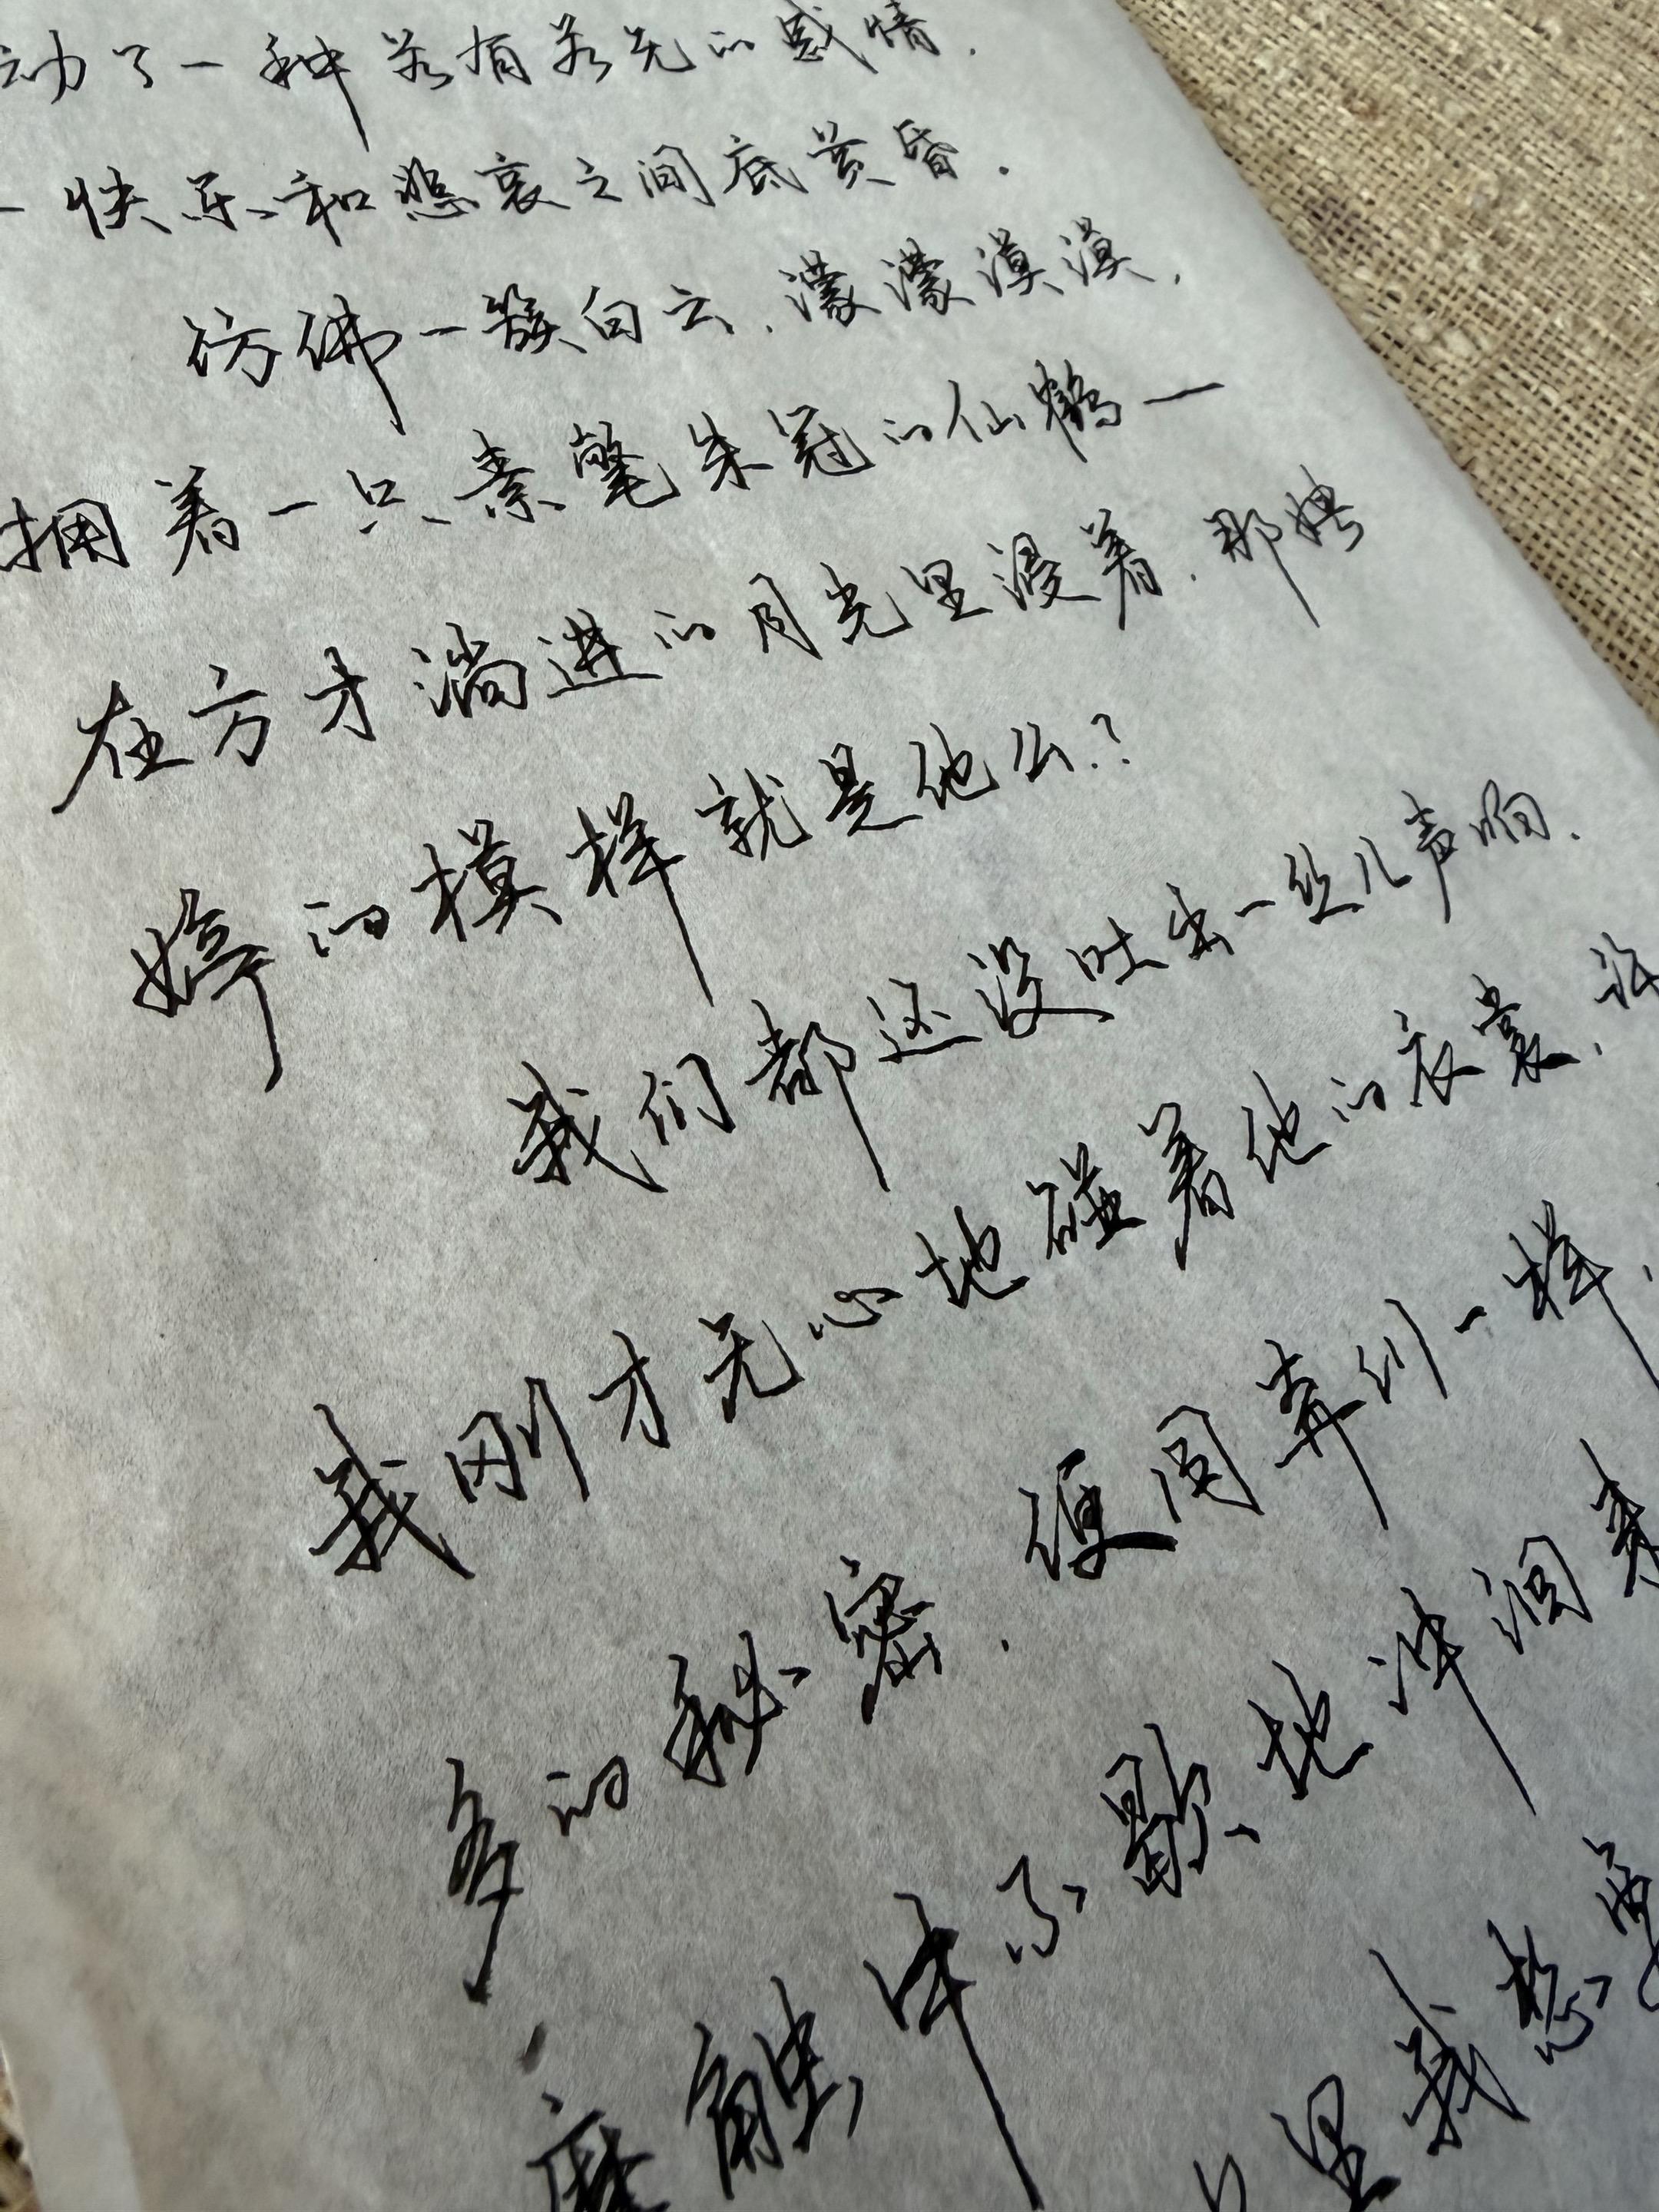 动了一种若有若无的感情.
快乐和悲哀之间底黄昏.
仿佛一簇白云,濛濛漠漠,
拥着一只素氅朱冠的仙鹤一
在方才淌进的月光里浸着,那娉
婷的模样就是他么?
我们都还没吐出一丝儿声响.
我刚才无心地碰着他的衣裳,许
多的秘密,便同奔川一样,
摩触中不歇地冲洄来
里我想要